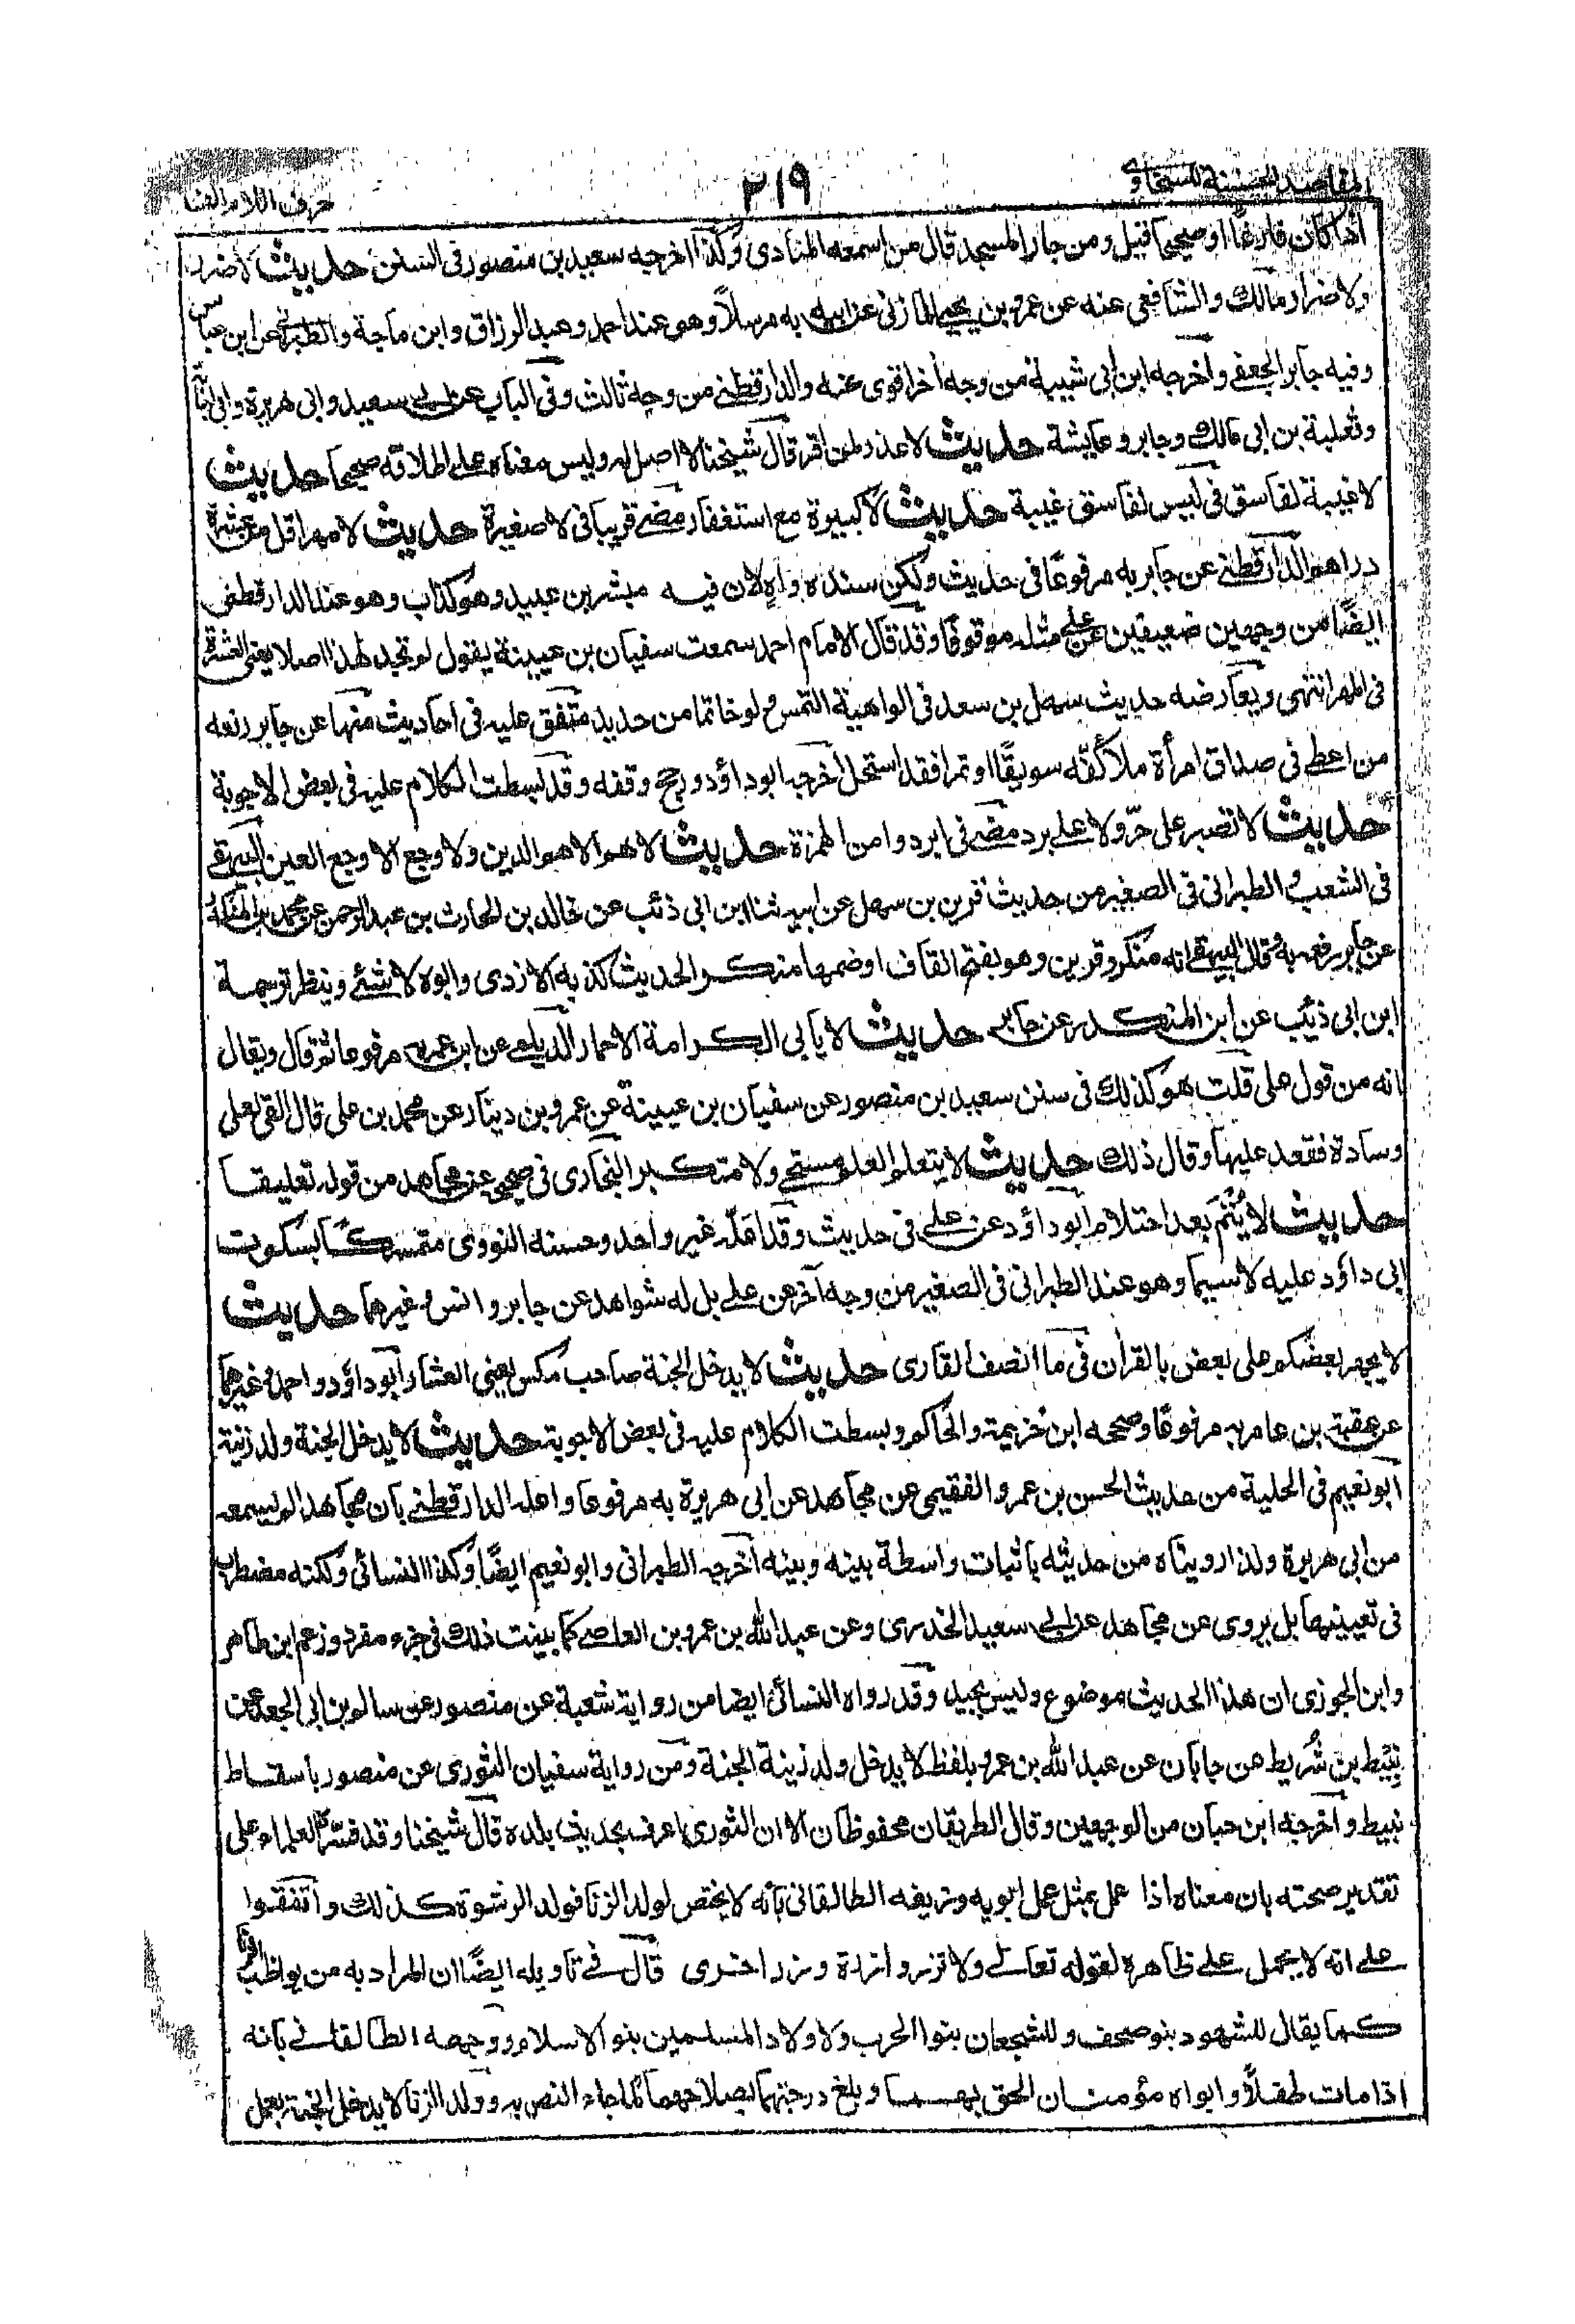 المقاصد الحسنة للسخاوي
٢١٩
حرف اللام الف
اذا كان فارغًا او صحيحا قيل ومن جار المسجد قال من اسمعه المنادي وكذا اخرجه سعيد بن منصور في السنن حديث لا ضرر
ولا ضرار مالك والشافعي عنه عن عمرو بن يحيى المازني عن ابيه به مرسلاً وهو عند احمد وعبد الرزاق وابن ماجة والطبراني عن ابن عباس
وفيه جابر الجعفي واخرجه ابن ابي شيبة من وجه اخر اقوى عنه والدارقطني من وجه ثالث وفي الباب عن ابي سعيد وابي هريرة وابي لبابة
وثعلبة بن ابي مالك وجابر وعايشة حديث لا عذر لمن اقر قال شيخنا لا اصل له وليس معناه على اطلاقه صحيحا حديث
لا غيبة لفاسق في ليس لفاسق غيبة حديث لا كبيرة مع استغفار مضى قريبا في لا صغيرة حديث لا مهر اقل من عشرة
دراهم الدارقطني عن جابر به مرفوعًا في حديث ولكن سنده واهٍ لان فيه مبشر بن عبيد وهو كذاب وهو عند الدارقطني
ايضًا من وجهين ضعيفين عن علي مثله موقوفا وقد قال الامام احمد سمعت سفيان بن عيينة يقول لم نجد لهذا اصلا يعني العشرة
في المهر انتهى ويعارضه حديث سهل بن سعد في الواهبة التمس ولو خاتما من حديد متفق عليه في احاديث منها عن جابر رفعه
من اعطى في صداق امرأة ملأ كفّه سويقًا او تمرا فقد استحل اخرجه ابو داؤد ورجح وقفه وقد بسطت الكلام عليه في بعض الاجوبة
حديث لا نصبر على حرّ ولا على برد مضى في ابردوا من الهمزة حديث لا هم الا هم الدين ولا وجع الا وجع العين البيهقي
في الشعب والطبراني في الصغير من حديث قرين بن سهل عن ابيه ثنا ابن ابي ذئب عن خالد بن الحارث بن عبد الرحمن عن محمد بن المنكدر
عن جابر رفعه به وقال البيهقي انه منكر وقرين وهو بفتح القاف او ضمها منكر الحديث كذبه الازدي وابوه لا شئ وينظر توسط
ابن ابي ذئب عن ابن المنكدر عن جابر حديث لا يأبى الكرامة الا حمار الديلمي عن ابن عمر به مرفوعا ثم قال ويقال
انه من قول علي قلت هو كذلك في سنن سعيد بن منصور عن سفيان بن عيينة عن عمرو بن دينار عن محمد بن علي قال القي لعلي
وسادة فقعد عليها وقال ذلك حديث لا يتعلم العلم مستحي ولا متكبر البخاري في صحيحه عن مجاهد من قوله تعليقا
حديث لا يُتْمَ بعد احتلام ابو داؤد عن علي في حديث وقد اعلّه غير واحد وحسنه النووي متمسكًا بسكوت
ابي داؤد عليه لا سيما وهو عند الطبراني في الصغير من وجه آخر عن علي بل له شواهد عن جابر وانس وغيرهما حديث
لا يجهر بعضكم على بعض بالقرآن في ما انصف القاري حديث لا يدخل الجنة صاحب مكس يعني العشار ابو داؤد واحمد وغيرهما
عن عقبة بن عامر به مرفوعًا وصححه ابن خزيمة والحاكم وبسطت الكلام عليه في بعض الاجوبة حديث لا يدخل الجنة ولد زنية
ابو نعيم في الحلية من حديث الحسن بن عمرو الفقيمي عن مجاهد عن ابي هريرة به مرفوعا واعله الدارقطني بان مجاهدا لم يسمعه
من ابي هريرة ولذا رويناه من حديثه باثبات واسطة بينه وبينه اخرجه الطبراني وابو نعيم ايضًا وكذا النسائي ولكنه مضطرب
في تعيينها بل يروى عن مجاهد عن ابي سعيد الخدري وعن عبد الله بن عمرو بن العاصي كما بينت ذلك في جزء مفرد وزعم ابن طاهر
وابن الجوزي ان هذا الحديث موضوع وليس بجيد وقد رواه النسائي ايضا من رواية شعبة عن منصور عن سالم بن ابي الجعد عن
نبيط بن شريط عن جابان عن عبد الله بن عمرو بلفظ لا يدخل ولد زنية الجنة ومن رواية سفيان الثوري عن منصور باسقاط
نبيط واخرجه ابن حبان من الوجهين وقال الطريقان محفوظان الا ان الثوري اعرف بحديث بلده قال شيخنا وقد فسّره العلماء على
تقدير صحته بان معناه اذا عمل بمثل عمل ابويه وزيفه الطالقاني بأنه لا يختص لولد الزنا فولد الرشوة كذلك واتفقوا
على انه لا يحمل على ظاهره لقوله تعالى ولا تزر وازرة وزر اخرى قال في تاويله ايضًا ان المراد به من يواظب الزنا
كما يقال للشهود بنو صحف وللشجعان بنوا الحرب ولاولاد المسلمين بنو الاسلام ووجهه الطالقاني بانه
اذا مات طفلاً وابواه مؤمنان الحق بهما وبلغ درجتهما بصلاحهما كما جاء النص به وولد الزنا لا يدخل الجنة بعمل